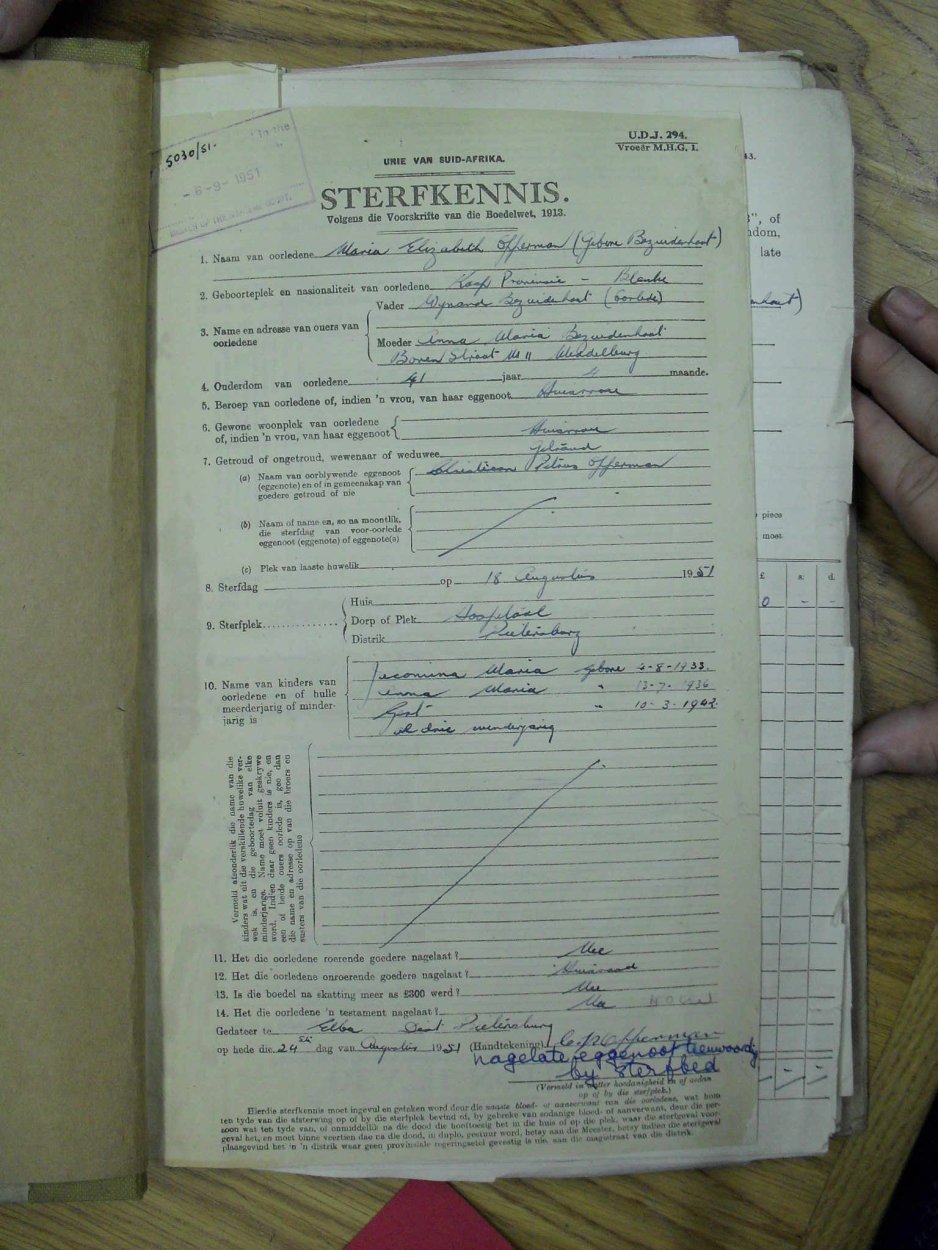 5030/51.
in the
- 6 - 9 - 1951
U.D.J. 294.
Vroeër M.H.G. 1.
UNIE VAN SUID-AFRIKA.
STERFKENNIS.
Volgens die Voorskrifte van die Boedelwet, 1913.
1. Naam van oorledene Maria Elizabeth Opperman (Gebore Bezuidenhout)
2. Geboorteplek en nasionaliteit van oorledene Kaap Provinsie - Blanke
3. Name en adresse van ouers van oorledene
Vader Wynand Bezuidenhout (oorlede)
Moeder Anna Maria Bezuidenhout
Boven Straat 11 Middelburg
4. Ouderdom van oorledene 41 jaar maande.
5. Beroep van oorledene of, indien 'n vrou, van haar eggenoot Huisvrou
6. Gewone woonplek van oorledene of, indien 'n vrou, van haar eggenoot
Huisvrou
7. Getroud of ongetroud, wewenaar of weduwee Getroud
(a) Naam van oorblywende eggenoot (eggenote) en of in gemeenskap van goedere getroud of nie
Christiaan Petrus Opperman
(b) Naam of name en, so na moontlik, die sterfdag van voor-oorlede eggenoot (eggenote) of eggenote(s)
(c) Plek van laaste huwelik
8. Sterfdag op 18 Augustus 1951
9. Sterfplek
Huis
Dorp of Plek Hospitaal
Distrik Pietersburg
10. Name van kinders van oorledene en of hulle meerderjarig of minderjarig is
Jecomina Maria gebore 4-8-1933.
Anna Maria " 13-7-1936
Gert " 10-3-1942
al drie minderjarig
Vermeld afsonderlik die name van die kinders wat uit die verskillende huwelike verwek is, en die geboortedag van elke minderjarige. Name moet voluit geskrywe word. Indien daar geen kinders is nie, en een of beide ouers oorlede is, gee dan die name en adresse op van die broers en susters van die oorledene
11. Het die oorledene roerende goedere nagelaat? Nee
12. Het die oorledene onroerende goedere nagelaat? Huisraad
13. Is die boedel na skatting meer as £300 werd? Nee
14. Het die oorledene 'n testament nagelaat? Nee
Gedateer te Elba Pietersburg
op hede die 24 ste dag van Augustus 1951 (Handtekening) C P Opperman
nagelate eggenoot teenwoordig
by sterfbed
(Vermeld in watter hoedanigheid en of aedan op of by die sterfplek.)
Hierdie sterfkennis moet ingevul en geteken word deur die naaste bloed- of aanverwant van die oorledene, wat hom
ten tyde van die afsterwing op of by die sterfplek bevind of, by gebreke van sodanige bloed- of aanverwant, deur die persoon
wat ten tyde van, of onmiddellik na die dood die hooftoesig het in die huis of op die plek, waar die sterfgeval voorgeval
het, en moet binne veertien dae na die dood, in duplo, gestuur word, hetsy aan die Meester, hetsy indien die sterfgeval
plaasgevind het in 'n distrik waar geen provinsiale regeringsetel gevestig is nie, aan die magistraat van die distrik.